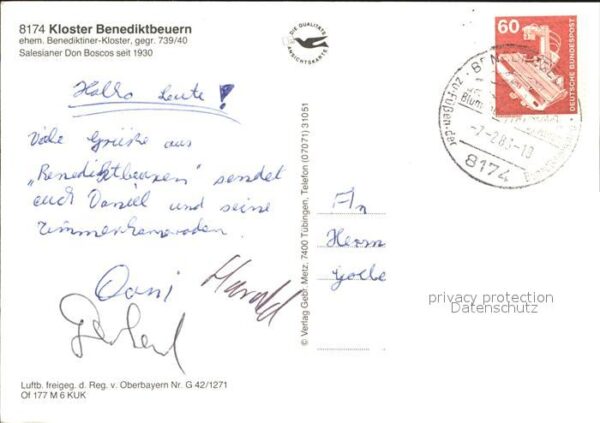 8174 Kloster Benediktbeuern
ehem. Benediktiner-Kloster, gegr. 739/40
Salesianer Don Boscos seit 1930
DIE QUALITÄTS
ANSICHTSKARTE
60
DEUTSCHE BUNDESPOST
8174
Hallo Leute!
Viele Grüße aus
„Benediktbeuren" sendet
euch Daniel und seine
Zimmerkameraden.
Dani
Harald
Gerhard
© Verlag Gebr. Metz, 7400 Tübingen, Telefon (07071) 31051
An
Herrn
privacy protection
Datenschutz
Luftb. freigeg. d. Reg. v. Oberbayern Nr. G 42/1271
Of 177 M 6 KUK